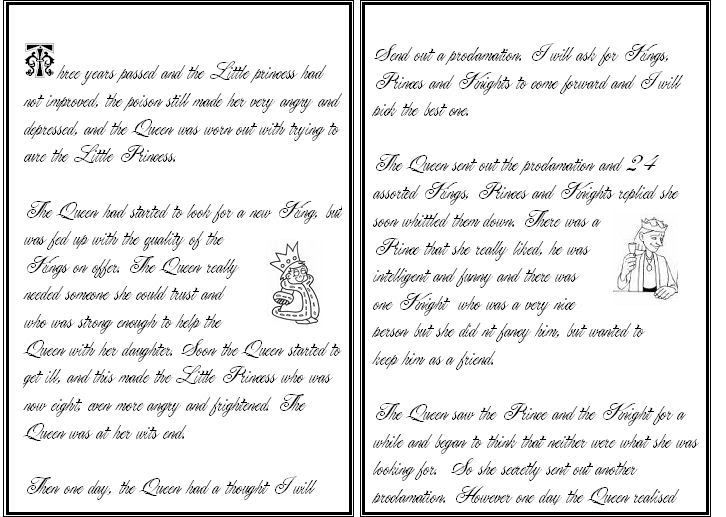 Three years passed and the Little princess had
not improved, the poison still made her very angry and
depressed, and the Queen was worn out with trying to
cure the Little Princess.
The Queen had started to look for a new King, but
was fed up with the quality of the
Kings on offer. The Queen really
needed someone she could trust and
who was strong enough to help the
Queen with her daughter. Soon the Queen started to
get ill, and this made the Little Princess who was
now eight, even more angry and frightened. The
Queen was at her wits end.
Then one day, the Queen had a thought I will
Send out a proclamation. I will ask for Kings,
Princes and Knights to come forward and I will
pick the best one.
The Queen sent out the proclamation and 24
assorted Kings, Princes and Knights replied she
soon whittled them down. There was a
Prince that she really liked, he was
intelligent and funny and there was
one Knight who was a very nice
person but she did nt fancy him, but wanted to
keep him as a friend.
The Queen saw the Prince and the Knight for a
while and began to think that neither were what she was
looking for. So she secretly sent out another
proclamation. However one day the Queen realised